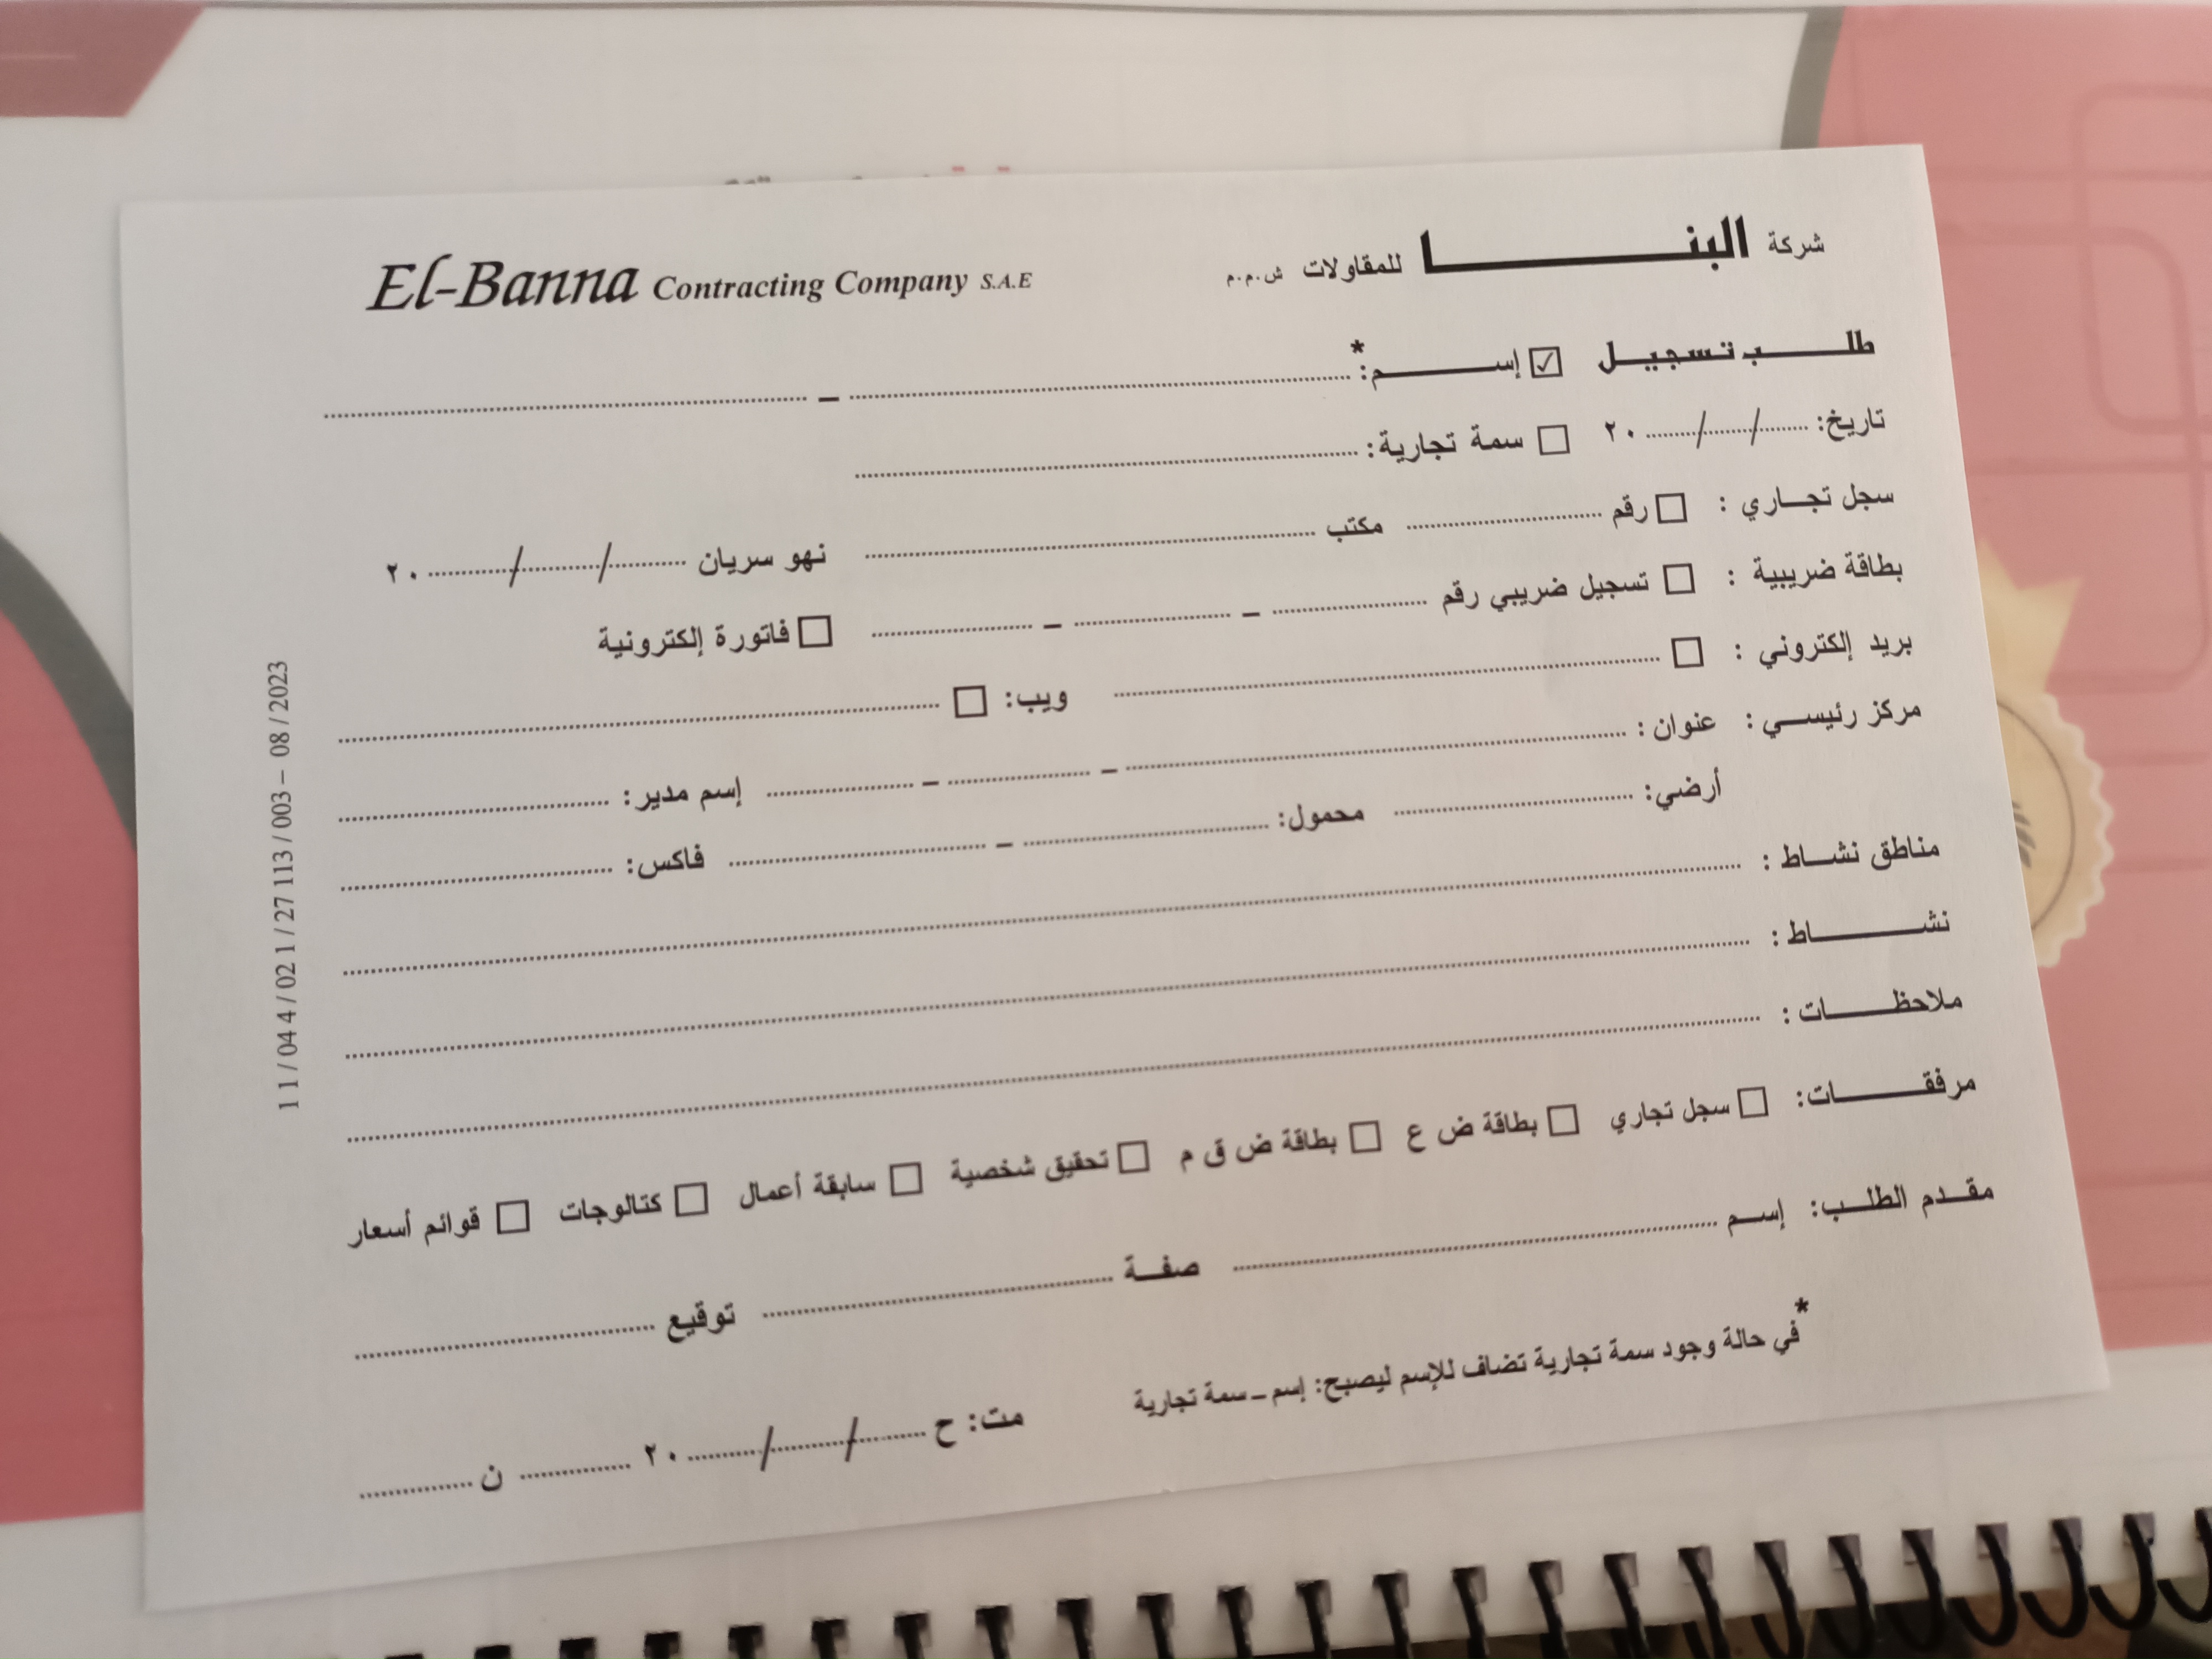 El-Banna Contracting Company S.A.E
شركة البنــا للمقاولات ش.م.م
طلـب تسجيـل ☑ إسـم:*........ – ........
تاريخ: ..../..../.... ٢٠ ☐ سمة تجارية: ........
سجل تجـاري : ☐ رقم ........ مكتب ........ نهو سريان ..../..../.... ٢٠
بطاقة ضريبية : ☐ تسجيل ضريبي رقم ........ – ........ – ........ ☐ فاتورة إلكترونية
بريد إلكتروني : ☐ ........ ويب: ☐ ........
مركز رئيسـي : عنوان : ........ – ........ – ........ إسم مدير: ........
أرضي: ........ محمول: ........ – ........ فاكس: ........
مناطق نشـاط : ........
نشـاط : ........
ملاحظـات : ........
مرفقـات: ☐ سجل تجاري ☐ بطاقة ض ع ☐ بطاقة ض ق م ☐ تحقيق شخصية ☐ سابقة أعمال ☐ كتالوجات ☐ قوائم أسعار
مقـدم الطلـب: إسـم ........ صفـة ........ توقيع ........
*في حالة وجود سمة تجارية تضاف للإسم ليصبح: إسم – سمة تجارية
مت: ح ..../..../.... ٢٠ ........ ن ........
11/044/021/27113/003 – 08/2023